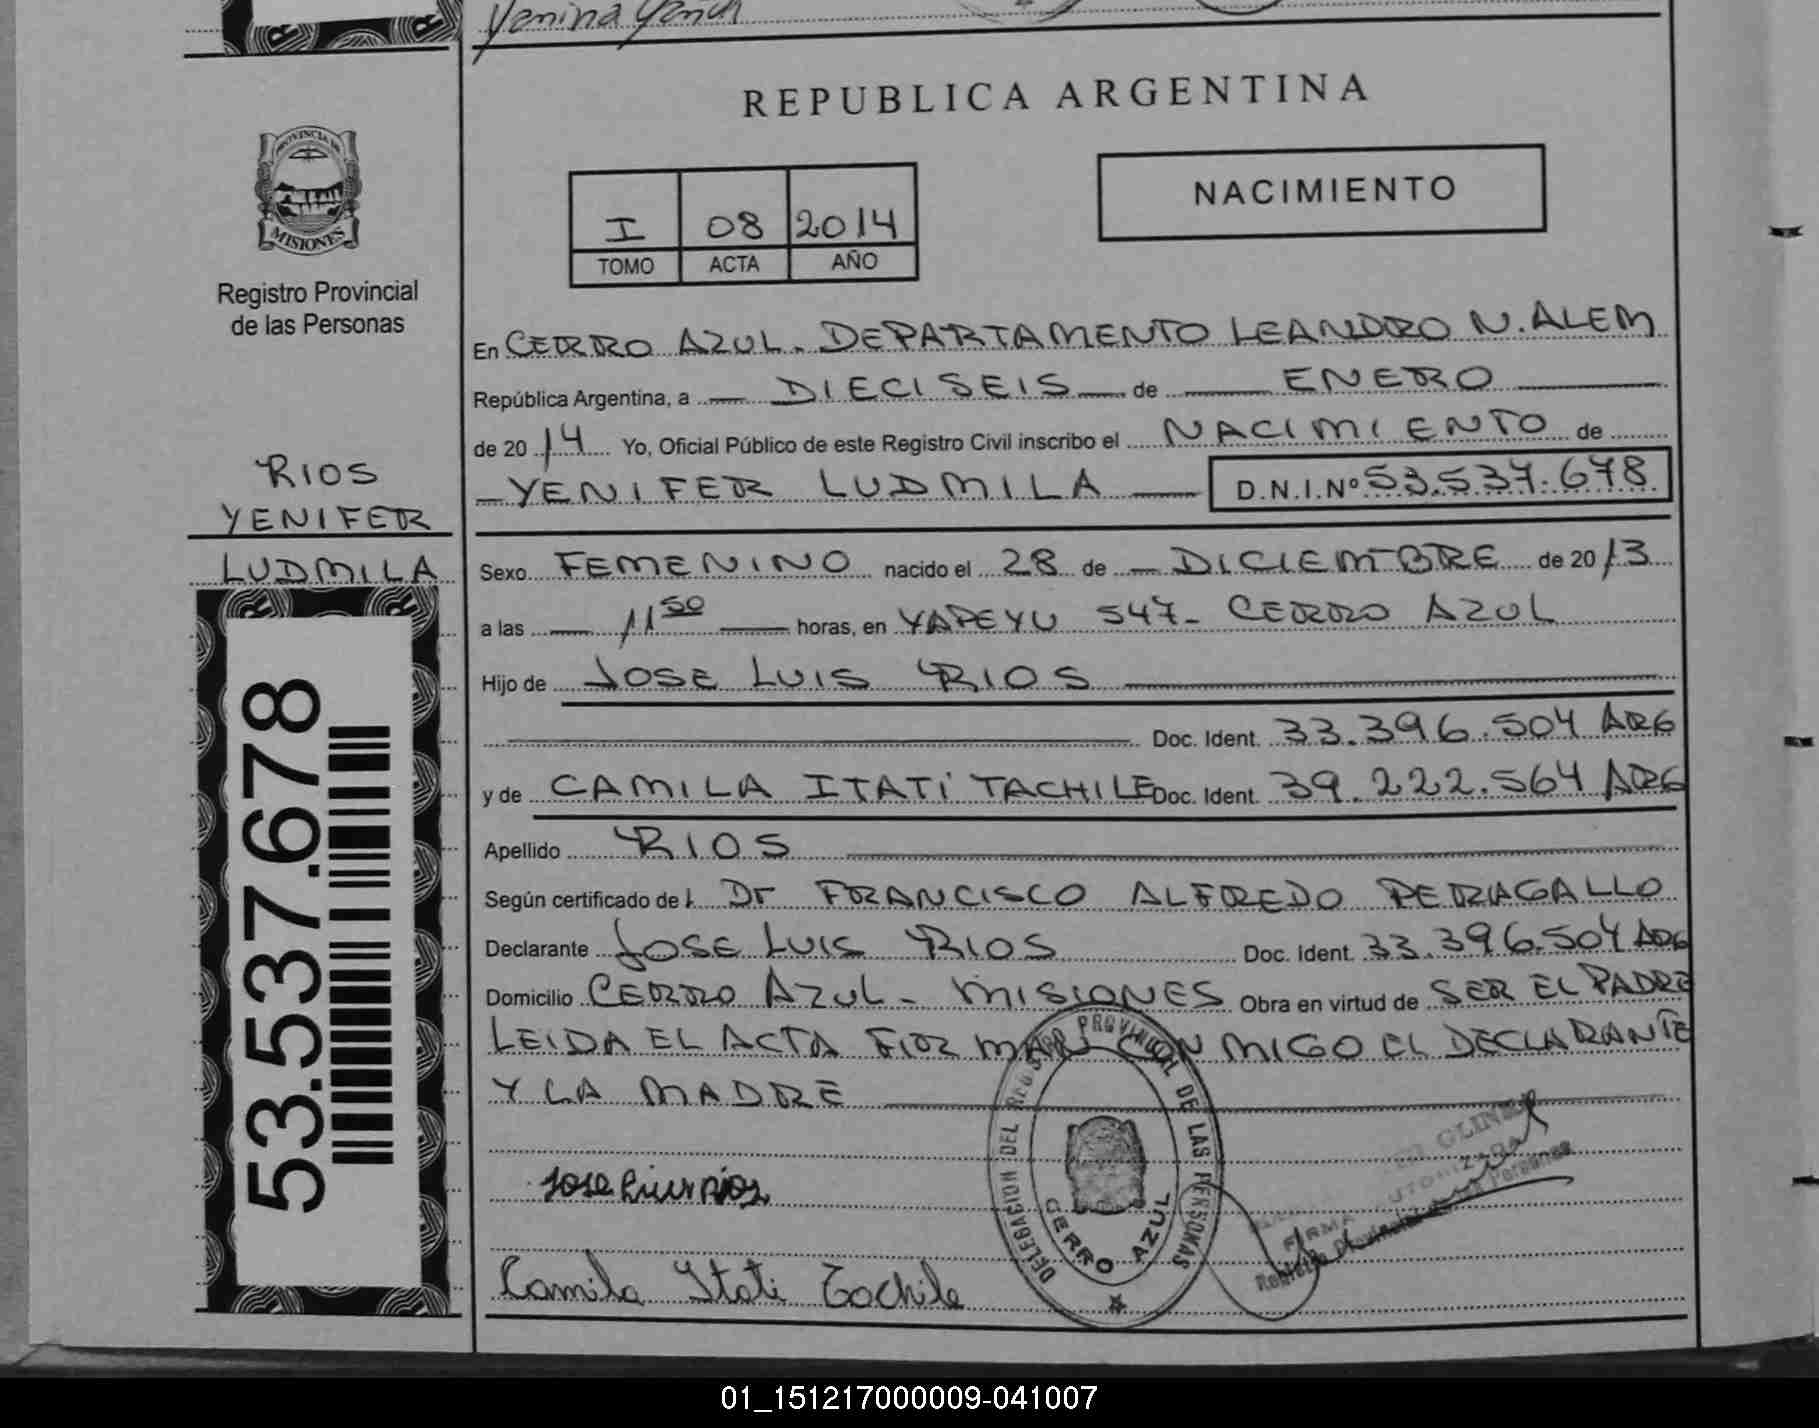 Yenina
REPUBLICA ARGENTINA
PROVINCIA DE
MISIONES
Registro Provincial
de las Personas
I 08 2014
TOMO ACTA AÑO
NACIMIENTO
En CERRO AZUL. DEPARTAMENTO LEANDRO N. ALEM
República Argentina, a DIECISEIS de ENERO
de 2014 Yo, Oficial Público de este Registro Civil inscribo el NACIMIENTO de
YENIFER LUDMILA D.N.I.Nº 53.537.678
RIOS
YENIFER
LUDMILA
53.537.678
Sexo FEMENINO nacido el 28 de DICIEMBRE de 2013
a las 11 50 horas, en YAPEYU 547- CERRO AZUL
Hijo de JOSE LUIS RIOS
Doc. Ident. 33.396.504 ARG
y de CAMILA ITATÍ TACHILE Doc. Ident. 39.222.564 ARG
Apellido RIOS
Según certificado del Dr FRANCISCO ALFREDO PERAGALLO
Declarante JOSE LUIS RIOS Doc. Ident. 33.396.504 ARG
Domicilio CERRO AZUL - MISIONES Obra en virtud de SER EL PADRE
LEIDA EL ACTA FIRMAN CONMIGO EL DECLARANTE
Y LA MADRE
Jose Luis Rios
Camila Itati Tachile
DELEGACION DEL REGISTRO PROVINCIAL DE LAS PERSONAS
CERRO AZUL
FIRMA
Registro Provincial de las Personas
01_151217000009-041007